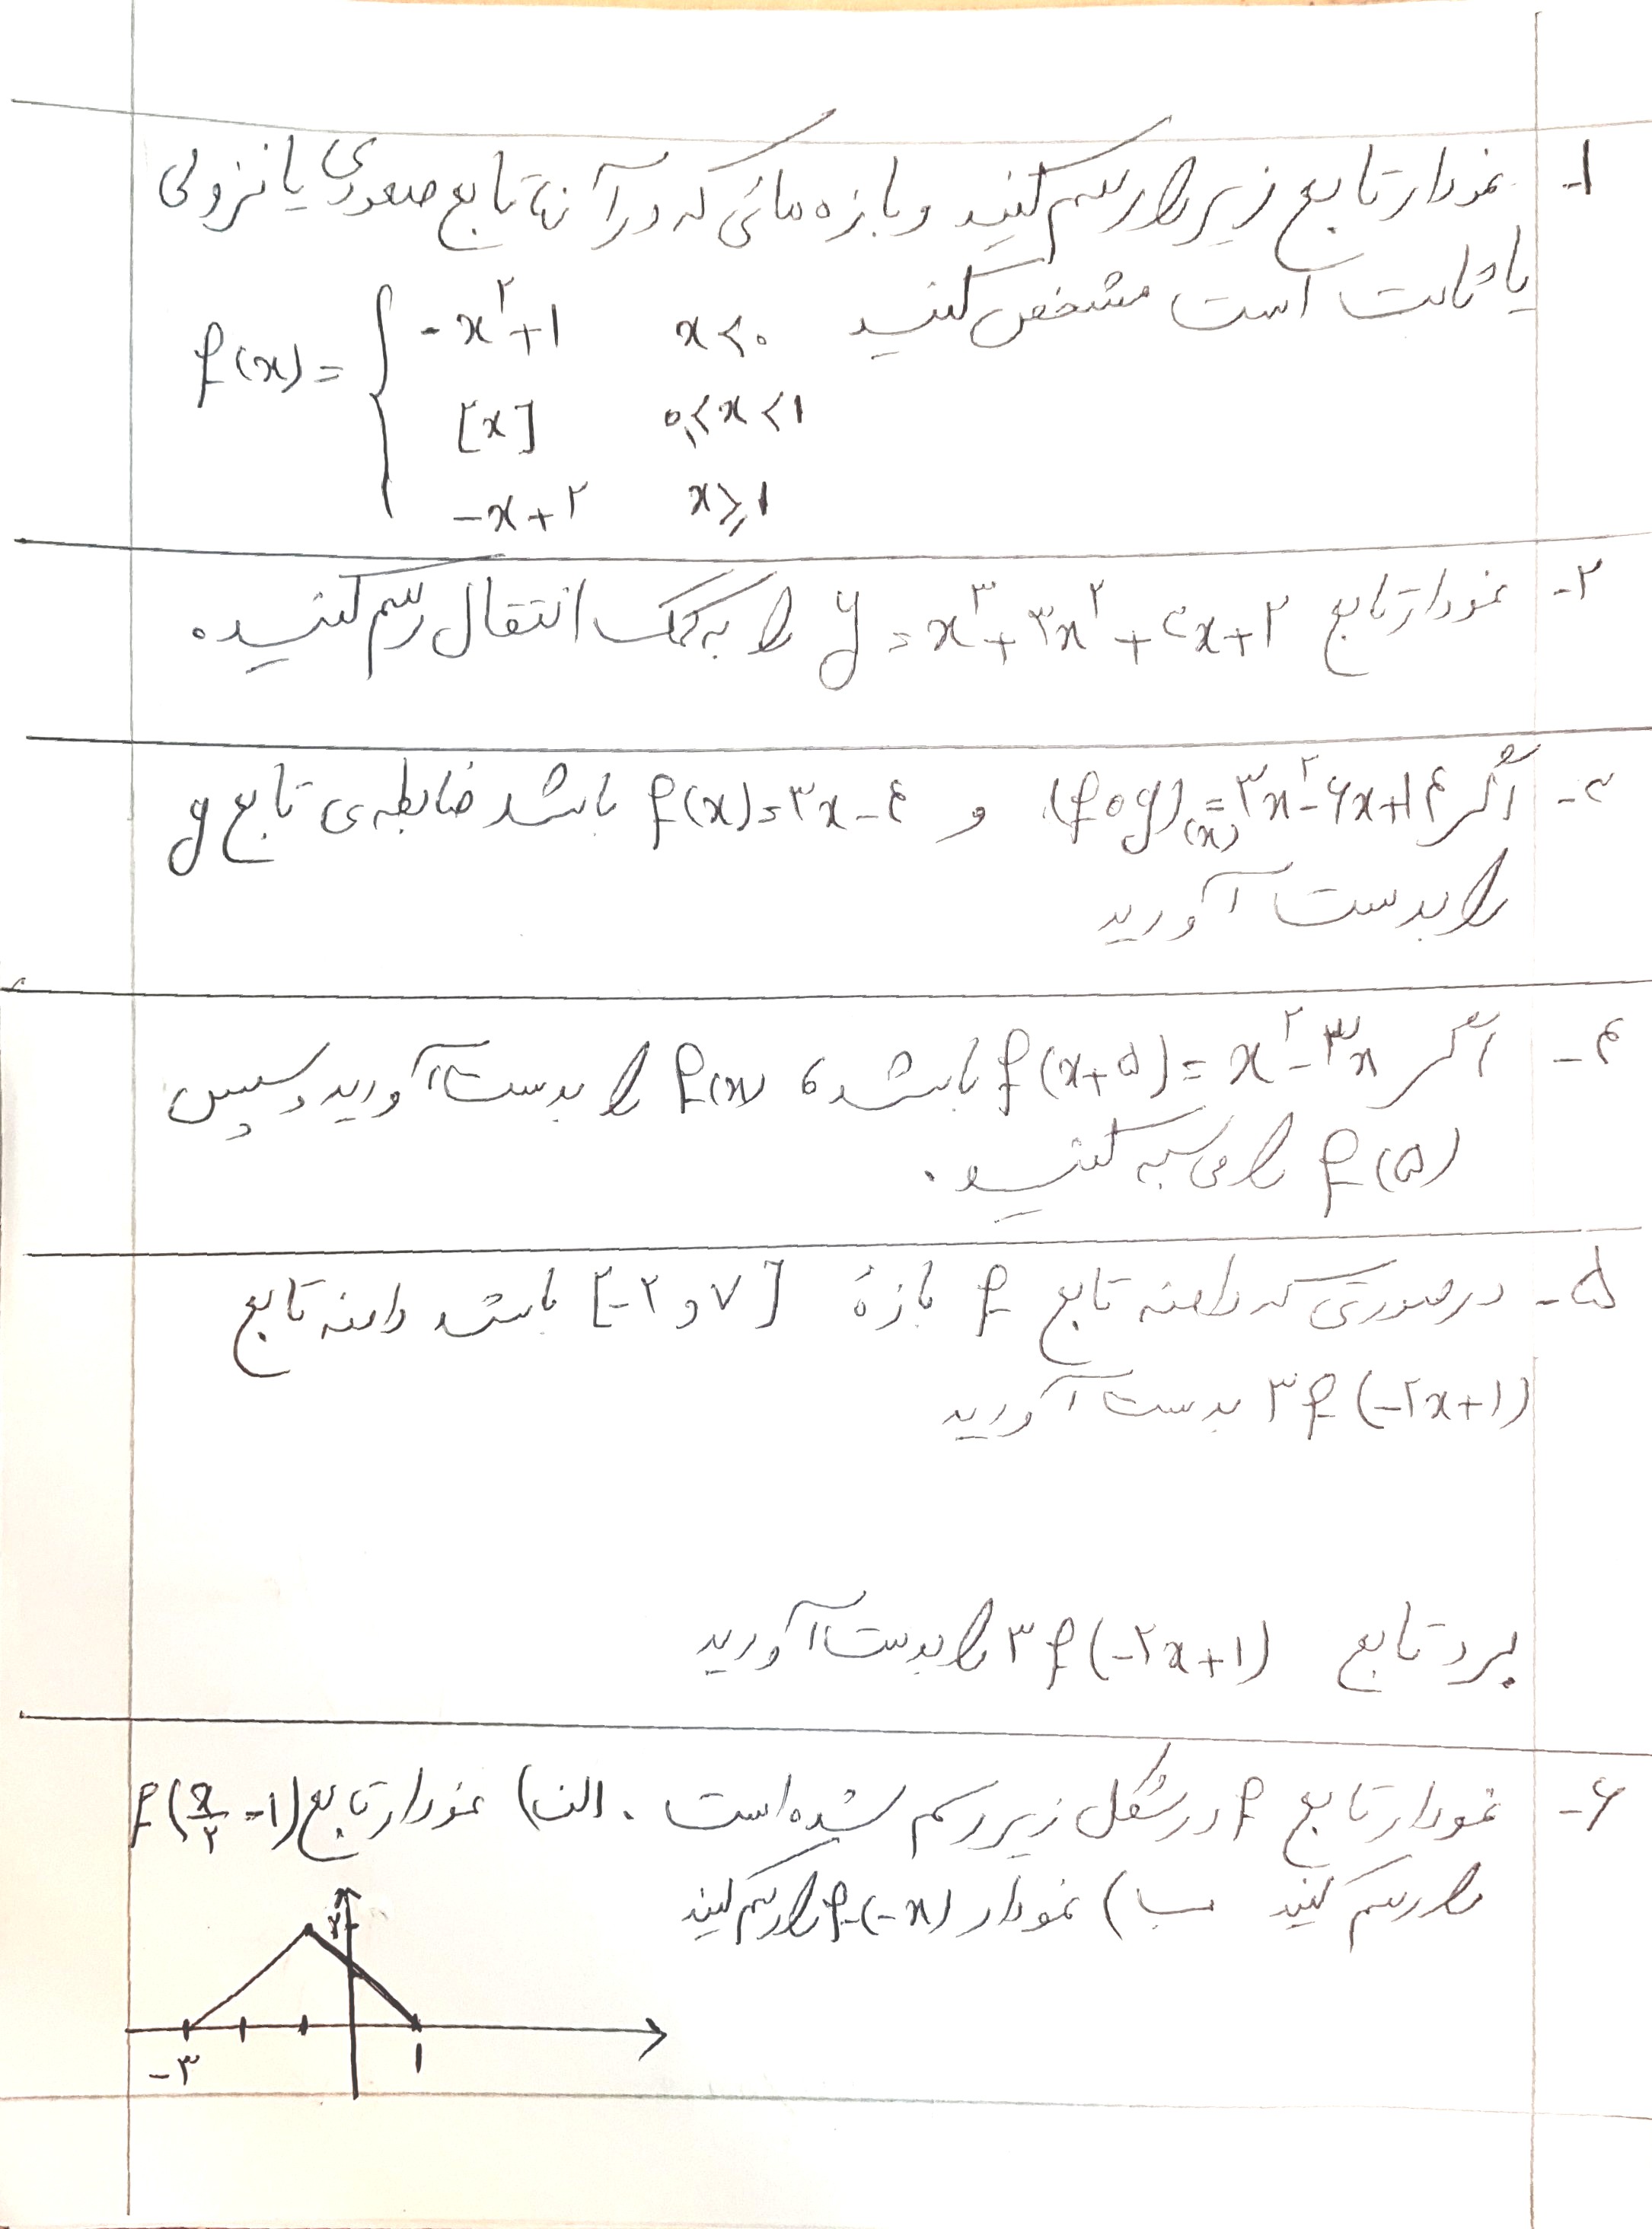 ۱- نمودار تابع زیر را رسم کنید و بازه هائی که در آن تابع صعودی یا نزولی
یا ثابت است مشخص کنید
f(x) = { -x²+1    x<0
[x]    0≤x<1
-x+2    x≥1
۲- نمودار تابع y = x³+3x²+3x+2 را به کمک انتقال رسم کنید.
۳- اگر (fog)(x) = 3x²-6x+14 و f(x)=3x-4 باشد ضابطه‌ی تابع g
را بدست آورید
۴- اگر f(x+5) = x²-3x باشد، f(x) را بدست آورید و سپس
f(5) را محاسبه کنید.
۵- در صورتی که دامنه تابع f بازهٔ [-۲و۷] باشد دامنه تابع
3f(-2x+1) بدست آورید
برد تابع 3f(-2x+1) را بدست آورید
۶- نمودار تابع f در شکل زیر رسم شده است. الف) نمودار تابع f(x/2 -1)
را رسم کنید ب) نمودار f(-x) را رسم کنید
۲
-۳    ۱